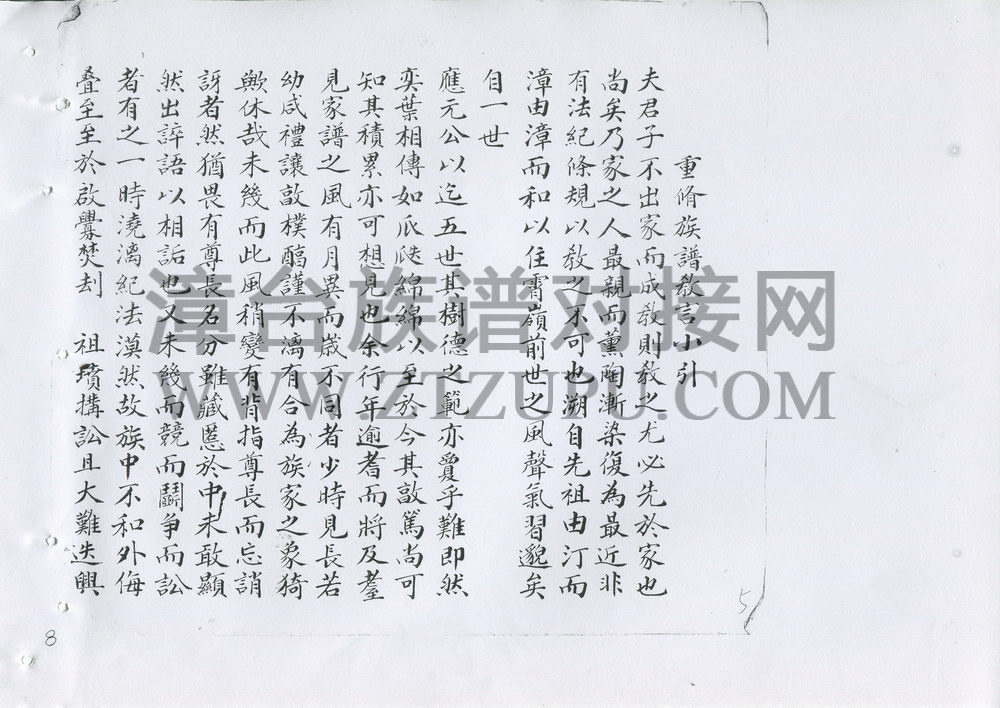 重脩族譜教言小引
夫君子不出家而成教則教之尤必先於家也
尚矣乃家之人最親而薰陶漸染復為最近非
有法紀條規以教之不可也溯自先祖由汀而
漳由漳而和以住霄嶺前世之風聲氣習邈矣
自一世
應元公以迄五世其樹德之範亦敻乎難即然
奕葉相傳如瓜瓞綿綿以至於今其敦篤尚可
知其積累亦可想見也余行年逾耆而將及耋
見家譜之風有月異而歲不同者少時見長若
幼咸禮讓敦樸醕謹不漓有合為族家之象猗
歟休哉未幾而此風稍變有背指尊長而忘誚
訝者然猶畏有尊長名分雖藏慝於中未敢顯
然出誶語以相詬也又未幾而競而鬭爭而訟
者有之一時澆漓紀法漠然故族中不和外侮
叠至至於啟釁焚刦 祖墳搆訟且大難迭興
5
8
漳台族谱对接网
WWW.ZTZUPU.COM